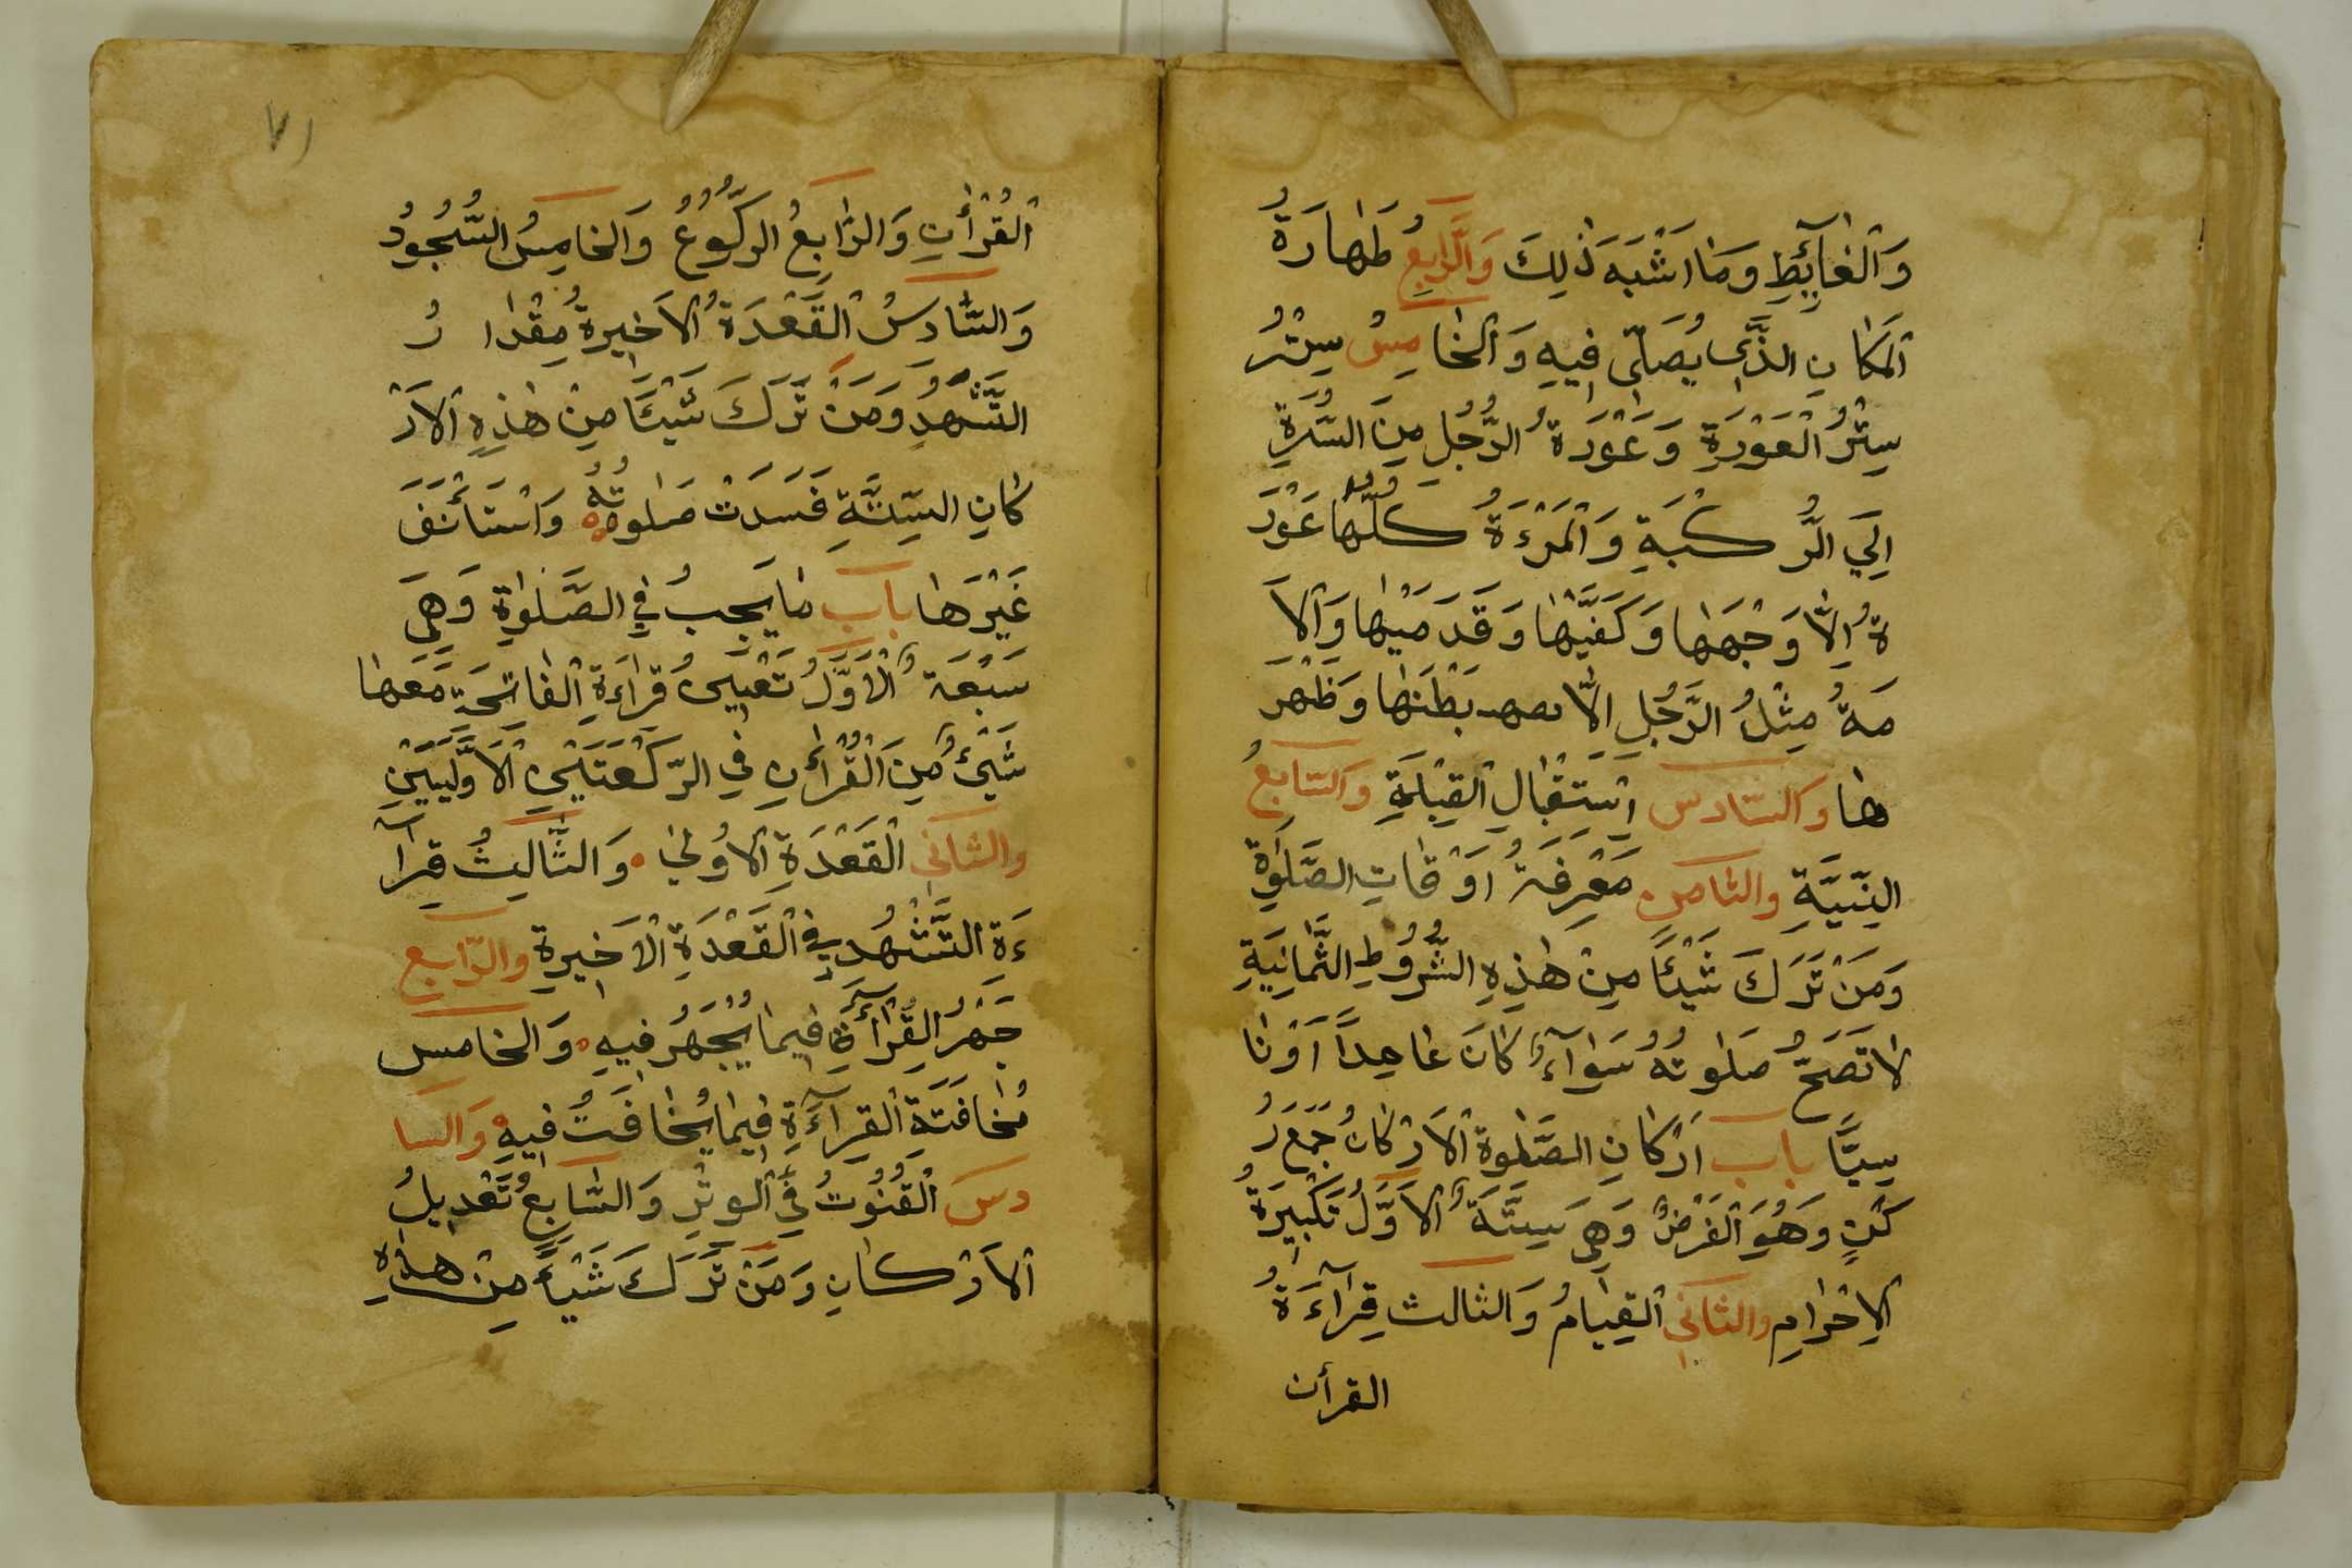 وَالْغَآئِطِ وَمَا اَشْبَهَ ذٰلِكَ وَالرَّابِعُ طَهَارَةُ
الْمَكَانِ الَّذِي يُصَلِّي فِيهِ وَالْخَامِسُ سِتْرُ
سِتْرُ الْعَوْرَةِ وَعَوْرَةُ الرَّجُلِ مِنَ السُّرَّةِ
اِلَي الرُّكْبَةِ وَالْمَرْءَةُ كُلُّهَا عَوْرَ
ةُ اِلَّا وَجْهَهَا وَكَفَّيْهَا وَقَدَمَيْهَا وَالْاَ
مَةُ مِثْلُ الرَّجُلِ اِلَّا بَطْنَهَا وَظَهْرَ
هَا وَالسَّادِسُ اِسْتِقْبَالِ الْقِبْلَةِ وَالسَّابِعُ
النِّيَّةِ وَالثَّامِنُ مَعْرِفَةُ اَوْقَاتِ الصَّلٰوةِ
وَمَنْ تَرَكَ شَيْئًا مِنْ هٰذِهِ الشُّرُوطِ الثَّمَانِيَةِ
لَا تَصَحُّ صَلٰوتُهُ سَوَآءٌ كَانَ عَامِدًا اَوْ نَا
سِيًا بَاب اَرْكَانِ الصَّلٰوةِ الْاَرْكَانُ جَمْعُ رُ
كْنٍ وَهُوَ الْفَرْضُ وَهِيَ سِتَّةٌ الْاَوَّلُ تَكْبِيرَةُ
الْاِحْرَامِ وَالثَّانِي الْقِيَامُ وَالثالث قِرَآءَةُ
القرأن
٧١
الْقُرْأٰنِ وَالرَّابِعُ الرُّكُوعُ وَالْخَامِسُ السُّجُودُ
وَالسَّادِسُ الْقَعْدَةُ الْاَخِيرَةُ مِقْدَا رُ
التَّشَهُّدِ وَمَنْ تَرَكَ شَيْئًا مِنْ هٰذِهِ الْاَرْ
كَانِ السِّتَّةِ فَسَدَتْ صَلٰوتُهُ وَاسْتَأْنَفَ
غَيْرَهَا بَاب مَا يَجِبُ فِي الصَّلٰوةِ وَهِيَ
سَبْعَةٌ الْاَوَّلُ تَعْيِينُ قِرَاءَةِ الْفَاتِحَةِ مَعَهَا
شَيْئٌ مِنَ الْقُرْأٰنِ فِي الرَّكْعَتَيْنِ الْاَوَّلَيَيْنِ
وَالثَّانِي الْقَعْدَةِ الْاُولٰي وَالثَّالِثُ قِرَآ
ءَةِ التَّشَهُّدِ فِي الْقَعْدَةِ الْاَخِيرَةِ وَالرَّابِعُ
جَهْرُ الْقِرْأَةِ فِيمَا يُجْهَرُ فِيهِ وَالخامس
مُخَافَتَةَ الْقِرَآءَةِ فِيمَا يُخَافَتُ فِيهِ وَالسا
دسَ الْقُنُوتُ فِي الْوِتْرِ وَالسَّابِعُ تَعْدِيلُ
الْاَرْكَانِ وَمَنْ تَرَكَ شَيْأً مِنْ هٰذِهِ